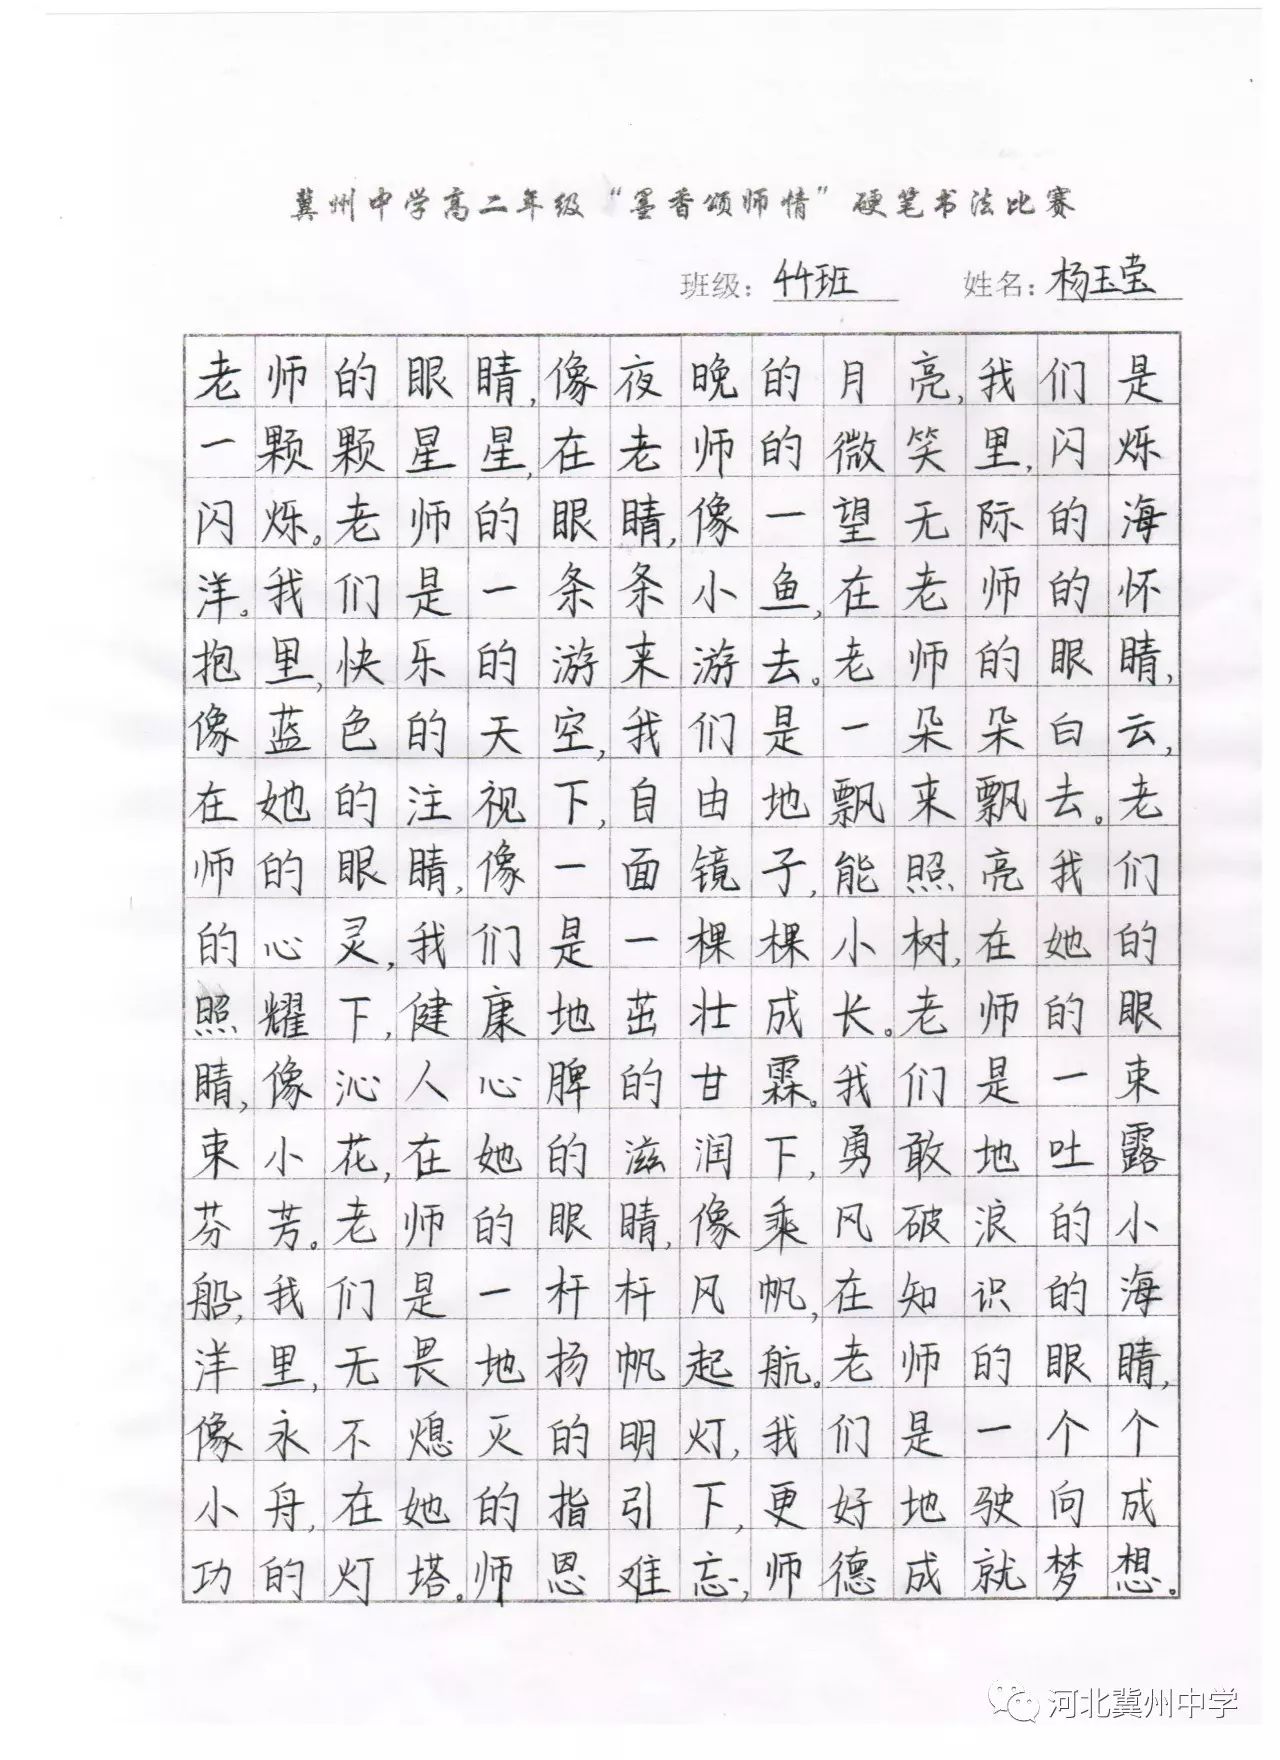 冀州中学高二年级“墨香颂师情”硬笔书法比赛
班级：44班 姓名：杨玉莹
老师的眼睛,像夜晚的月亮,我们是
一颗颗星星,在老师的微笑里,闪烁
闪烁。老师的眼睛,像一望无际的海
洋。我们是一条条小鱼,在老师的怀
抱里,快乐的游来游去。老师的眼睛,
像蓝色的天空,我们是一朵朵白云,
在她的注视下,自由地飘来飘去。老
师的眼睛,像一面镜子,能照亮我们
的心灵,我们是一棵棵小树,在她的
照耀下,健康地茁壮成长。老师的眼
睛,像沁人心脾的甘霖。我们是一束
束小花,在她的滋润下,勇敢地吐露
芬芳。老师的眼睛,像乘风破浪的小
船,我们是一杆杆风帆,在知识的海
洋里,无畏地扬帆起航。老师的眼睛,
像永不熄灭的明灯,我们是一个个
小舟,在她的指引下,更好地驶向成
功的灯塔。师恩难忘,师德成就梦想。
河北冀州中学